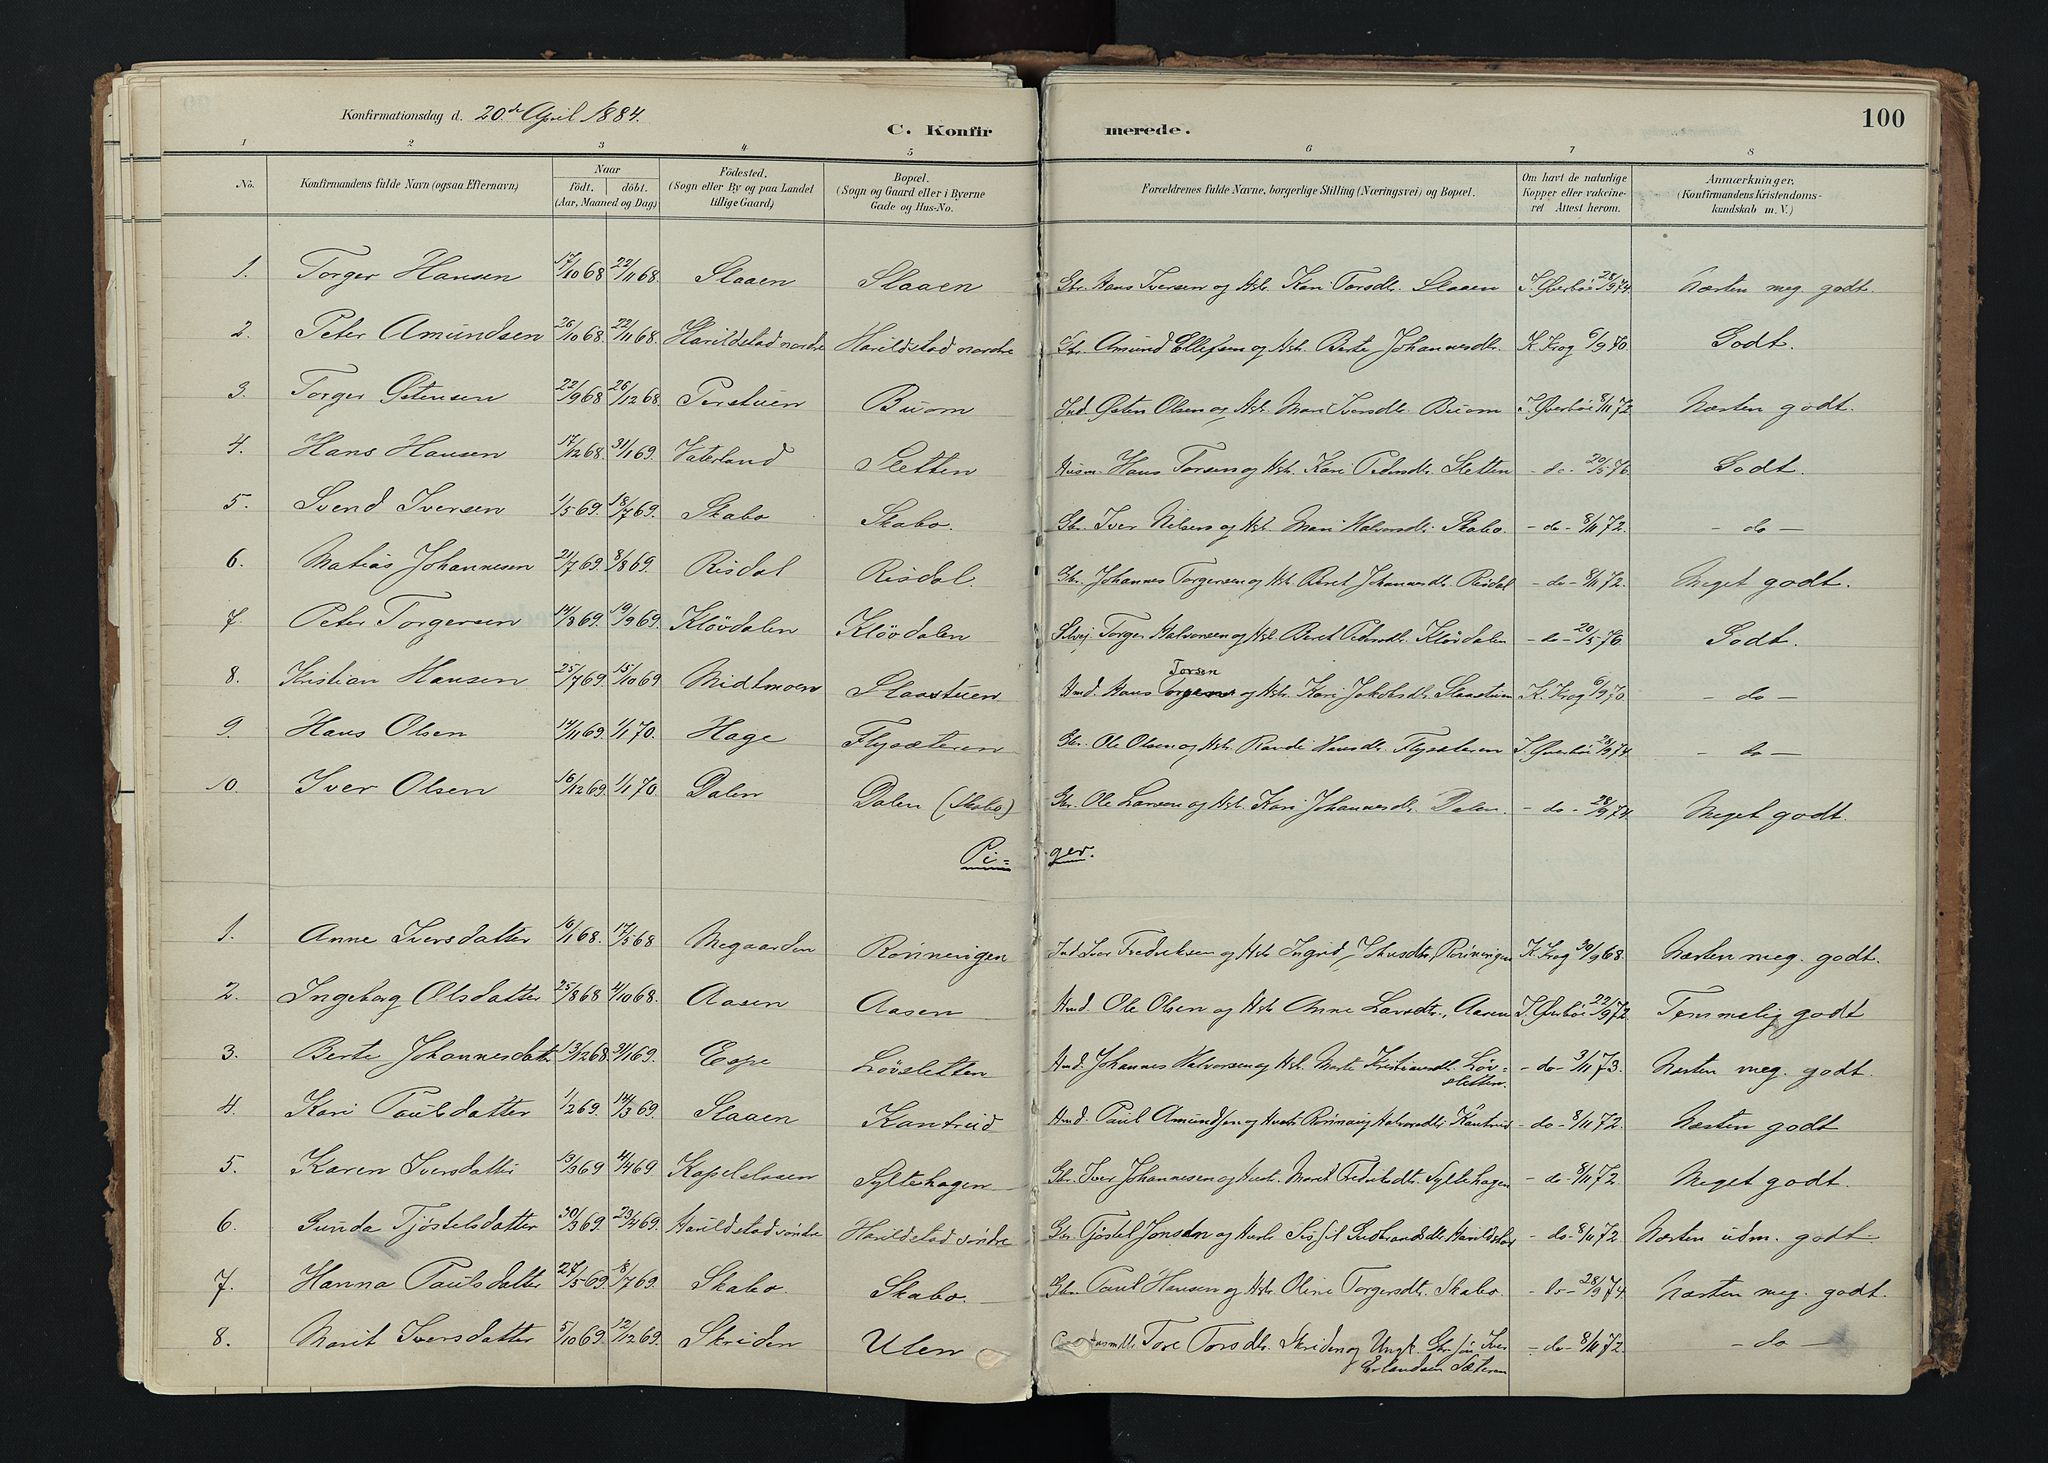 Konfirmationsdag d. 20de April 1884.
C. Konfirmerede.
100
1 2 3 4 5 6 7 8
No. Konfirmandens fulde Navn (ogsaa Efternavn) Naar født. døbt. (Aar, Maaned og Dag) Fødested. (Sogn eller By og paa Landet tillige Gaard) Bopæl. (Sogn og Gaard eller i Byerne Gade og Hus-No. Forældrenes fulde Navne, borgerlige Stilling (Næringsvei) og Bopæl. Om havt de naturlige Kopper eller vakcineret Attest herom. Anmærkninger. (Konfirmandens Kristendomskundskab m. V.)
1. Torger Hansen 17/10 68 22/11 68. Slaaen Slaaen Gbr. Hans Iversen og Hstr. Kari Torsdtr. Slaaen I. Øverbøe 28/9 74. Næsten meg. godt.
2. Peter Amundsen 26/10 68. 22/11 68. Harildstad nordre Harildstad nordre Gbr. Amund Ellefsen og Hstr. Berte Johannesdtr. K. Krog 6/9 70. Godt.
3. Torger Østensen 22/9 68 26/12 68. Perstuen Buom Ind. Østen Olsen og Hstr. Mari Iversdtr. Buom I. Øverbøe 8/11 72. Næsten godt.
4. Hans Hansen 17/12 68. 31/1 69. Vaterland Sletten Husm. Hans Torsen og Hstr. Kari Pedersdtr. Sletten - do - 20/5 76. Godt.
5. Svend Iversen 1/5 69. 18/7 69. Skabo Skabo. Gbr. Iver Nilsen og Hstr. Mari Halvorsdtr. Skabo. - do - 8/11 72. - do -
6. Matias Johannesen 21/7 69. 8/8 69. Risdal Risdal. Gbr. Johannes Torgersen og Hstr. Beret Johannesdtr. Risdal - do - 8/11 72. Meget godt.
7. Peter Torgersen 14/3 69. 19/9 69. Kløvdalen Kløvdalen Torger Halvorsen og Hst. Beret Pedersdtr. Kløvdalen - do - 20/5 76. Godt.
8. Kristian Hansen 25/7 69. 15/10 69 Midtmoen Slaastuen Ind. Hans Torsen og Hstr. Kari Jakobsdtr. Slaastuen K. Krog 6/9 70. - do -
9. Hans Olsen 14/11 69. 1/1 70. Hage Flysæteren Gbr. Ole Olsen og Hstr. Randi Hansdtr. Flysæteren I. Øverbøe 28/9 74. - do -
10. Iver Olsen 16/12 69. 1/1 70. Dalen Dalen (Skabo) Gbr. Ole Larsen og Hstr. Kari Johannesdtr. Dalen. - do - 28/9 74. Meget godt.
Pi=ger.
1. Anne Iversdatter 10/1 68. 17/5 68 Megaarden Rønningen Ind. Iver Fredriksen og Hstr. Ingrid Rønningen K. Krog 30/9 68. Næsten meg. godt.
2. Ingeborg Olsdatter 25/8 68 4/10 68. Aasen Aasen Ind. Ole Olsen og Hstr. Anne Larsdtr., Aasen I. Øverbøe 22/9 72. Temmelig godt
3. Berte Johannesdatr. 13/12 68. 31/1 69. Espe Løvsletten Ind. Johannes Halvorsen og Hst. Marte Kristiansdtr. Løv=sletten. - do - 3/11 73. Næsten meg. godt.
4. Kari Paulsdatter 1/2 69. 14/3 69. Slaaen Kantrud Ind. Paul Amundsen og Hustr. Rønnaug Halvorsdtr. Kantrud - do - 8/11 72. Næsten godt
5. Karen Iversdatter 13/3 69 4/4 69. Kapelslaaen Syltehagen Gbr. Iver Johannesen og Hustr. Marit Fredriksdtr. Syltehagen - do - 8/11 72 Meget godt.
6. Gunda Tjøstelsdatter 30/3 69. 25/4 69. Harildstad søndre Harildstad søndre Gbr. Tjøstel Jonsen og Hustr. Sissil Gudbrandsdtr. Harildstad - do - 8/11 72 Næsten udm. godt.
7. Hanna Paulsdatter 27/5 69. 8/7 69. Skabo. Skabo. Gbr. Paul Hansen og Hstr. Oline Torgersdtr. Skabo. - do - 28/9 74. Næsten meg. godt.
8. Marit Iversdatter 5/10 69. 12/12 69. Skriden Ulen Tore Torsdtr. Skriden og Ungk. Iver Erlandsen Sæteren - do - 8/11 72. - do -